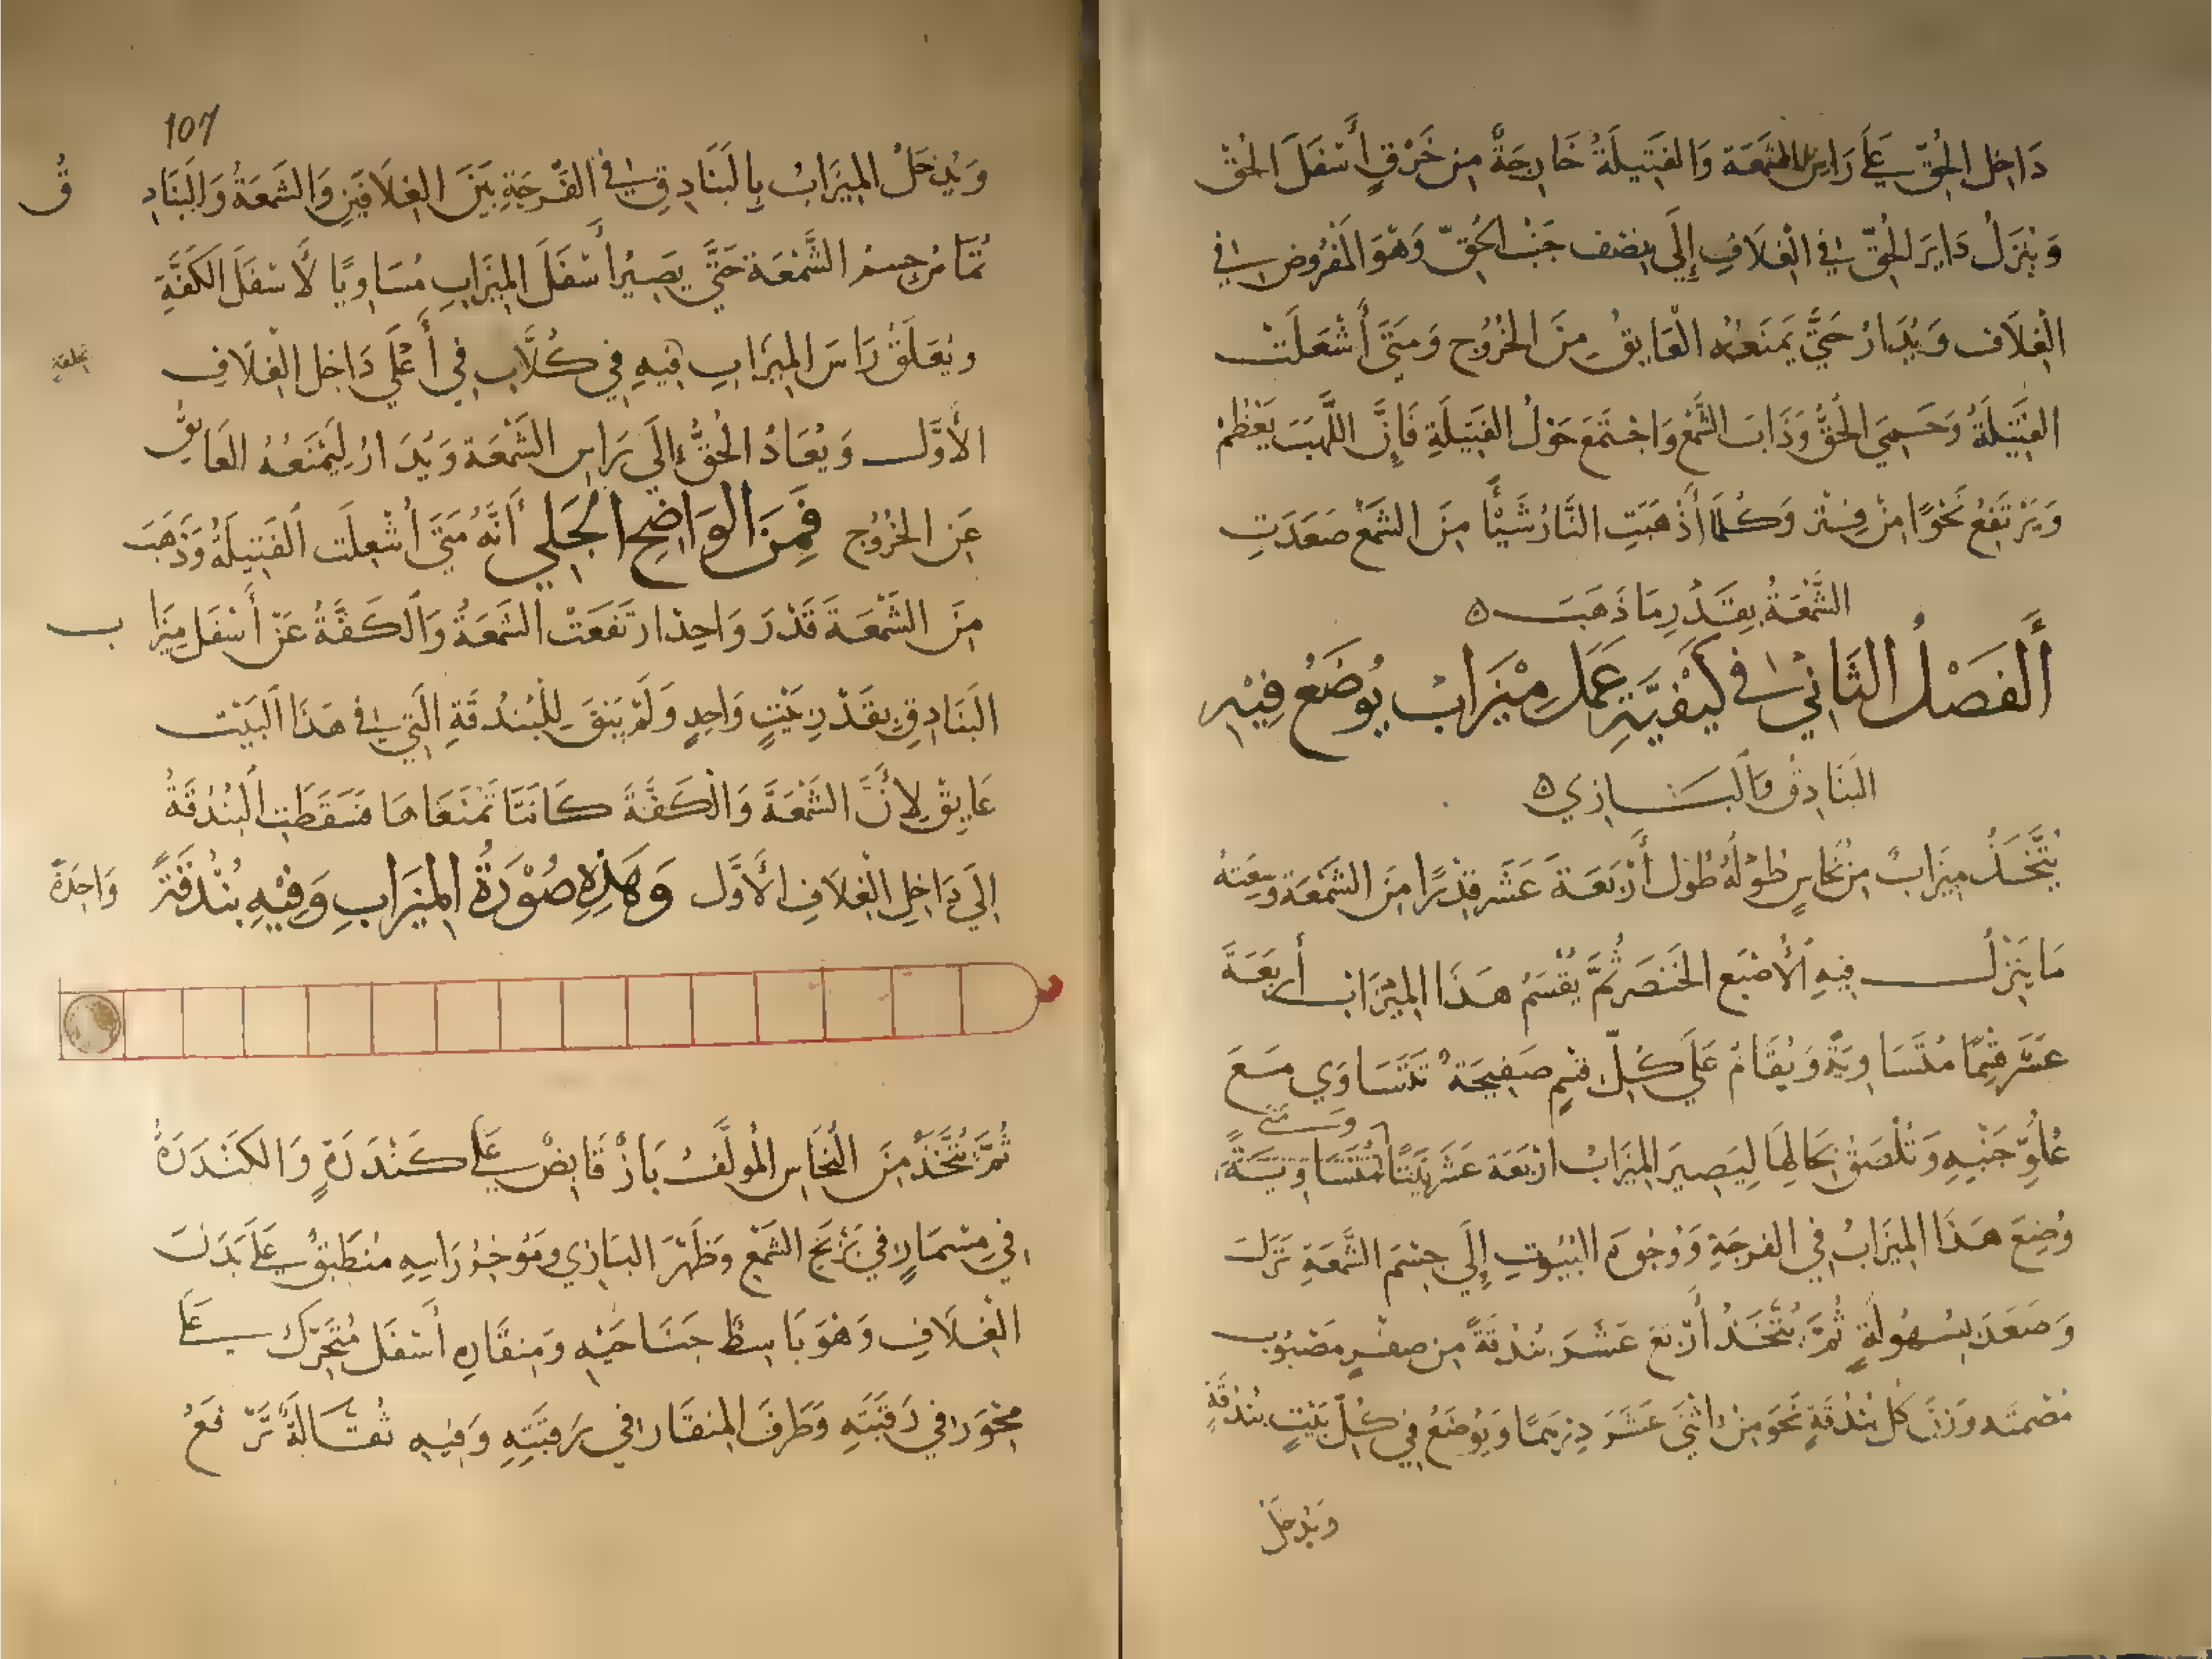 دَاخِل الحُقّ عَلَى رَاسِ الشَمَعَة وَالفَتِيلَةُ خَارِجَةٌ مِن خَرْقٍ أَسْفَلَ الحُقّ
وَيَنزِلُ دَايِرَ الحُقّ فِي الْغِلَافِ إِلَى نِصْفِ جَنْبِ الحُقّ وَهُوَ المَفرُوض فِي
الْغِلَاف وَيُدَارُ حَتَّى يَمنَعُهُ الْعَايِقُ مِنَ الخُرُوج وَمَتَى أَشْعَلَتْ
الفَتِيْلَةُ وَحَمِيَ الحُقُّ وَذَابَ الشَّمْعُ وَاجْتَمَعَ حَوْلُ الفَتِيلَةِ فَإِنَّ اللَّهِيبَ يَعْظُمْ
وَيَرْتَفِعُ نَحْوًا مِنْ فِتْر وَكُلَّمَا أَذْهَبَتِ النَّارُ شَيْئًا مِنَ الشَّمْعِ صَعَدَتِ
الشَّمْعَةُ بِقَدْرِ مَا ذَهَبَ ه
أَلفَصْلُ الثَّانِي فِي كَيْفِيَّةِ عَمَلِ مِيْزَابٍ يُوضَعُ فِيْهِ
البَنَادِقُ وَالبَازِي ه
يُتَّخَذُ مِيزَابٌ مِن نُحَاسٍ طُوْلُهُ طُول أَرْبَعَةَ عَشَر قِدْرًا مِنَ الشَّمْعَة وَسِعَتهُ
مَا يَنْزِلُ فِيهِ الأُصْبَعِ الخَنْصَر ثُمَّ يُقْسَمُ هَذَا المِيْزَاب أَرْبَعَةَ
عَشَر قِسْمًا مُتَسَاوِيَةً وَيُقَامُ عَلَى كُلِّ قِسْمٍ صَفِيحَةٌ تَتَسَاوَى مَعَ
عُلُوِّ جَنْبِهِ وَتُلْصَقُ بِحَالِهَا لِيَصِيرَ المِيزَابُ أَرْبَعَةَ عَشَر بَيْتًا مُتَسَاوِيَةً وَمَتَى
وُضِعَ هَذَا المِيزَابُ فِي الفرجَةِ وَوُجُوهُ البُيُوتِ إِلَى جِسْمِ الشَّمْعَةِ نَزَلَ
وَصَعَدَ بِسُهُولَةٍ ثُمَّ يُتَّخَذُ أَرْبَعَ عَشَرَ بُنْدُقَةً مِن صِفْرٍ مَصْبُوبٍ
مُصْمَتَه وَزْن كُل بُنْدُقَةٍ نَحْوَ مِنْ اثْنَي عَشَرَ دِرْهَمًا وَيُوضَعُ فِي كُلّ بَيْتٍ بُنْدُقَةٍ
وَيُدخَل
107
وَيُدْخَلُ المِيزَابُ بِالبَنَادِقِ فِي الفُرجَةِ بَيْنَ الغِلَافَيْنِ وَالشَمعَةُ وَالبَنَادِقُ
تُمَاسُ جِسْمَ الشَّمْعَة حَتَّى يَصِيرُ أَسْفَلَ المِيزَابِ مُسَاوِيًا لأَسْفَلَ الكَفَّةِ
وَيُعَلَّقُ رَاسَ المِيزَابِ فِيهِ فِي كُلَّابٍ فِي أَعْلَى دَاخِل الْغِلَافِ
بحلقة
الأَوَّل وَيُعَادُ الحُقُّ إِلَى رَاسِ الشَّمْعَة وَيُدَارُ لِيَمْنَعُهُ العَايِقُ
عَنِ الخُرُوج فَمِنَ الوَاضِحِ الجَلِي أَنَّهُ مَتَى أُشْعِلَت الفَتِيلَةُ وَذَهَبَ
مِنَ الشَّمْعَةَ قَدْرَ وَاحِدْ ارتَفَعَتْ الشَمعَةُ وَالكَفَّةُ عَنْ أَسْفَلِ مِيزَاب
البَنَادِقِ بِقَدْرِ بَيْتٍ وَاحِدٍ وَلَمْ يَبْقَ لِلْبُنْدُقَةِ الَّتِي فِي هَذَا الْبَيْت
عَايِقٌ لِأَنَّ الشَّمْعَةَ وَالْكَفَّةَ كَانَتَا تَمْنَعَاهَا فَسَقَطَت الْبُنْدُقَةُ
إِلَى دَاخِلِ الْغِلَافِ الأَوَّل وَهَذِهِ صُوْرَةُ المِيْزَابِ وَفِيْهِ بُنْدُقَةً وَاحِدَةً
ثُمَّ يُتَّخَذُ مِنَ النُّحَاسِ المُولَّفُ بَازْ قَابِضٌ عَلَى كَنْدَرَةٍ وَالكَنْدَرَةُ
فِي مِسْمَارٍ فِي بَرْبَخِ الشَّمْعِ وَظَهْرَ البَازِي وَمُوخِرُ رَاسِهِ مُنْطَبِقٌ عَلَى بَدَنَ
الْغِلَافِ وَهُوَ بَاسِطٌ جَنَاحَيْهِ وَمِنقَارِهِ أَسْفَلَ مُتَحَرِّك عَلَى
مِحْوَر فِي رَقَبَتِهِ وَطَرفَ المِنقَارِ فِي رَقَبَتِهِ وَفِيهِ ثُقَّالَةً تَرْفَعُ